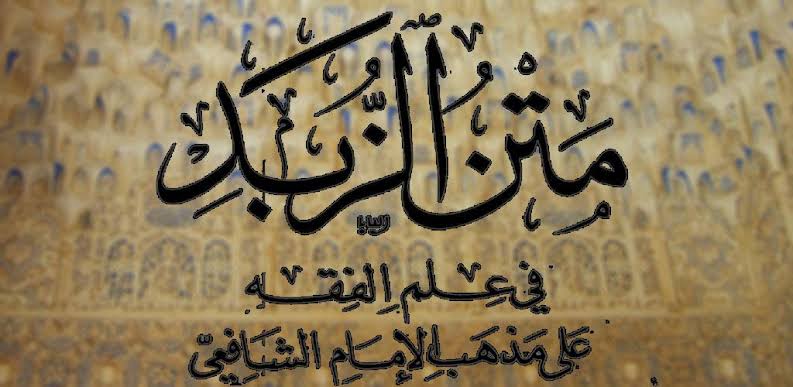 مَتْنُ الزُّبَدِ
في عِلمِ الفِقهِ
عَلى مَذهَبِ الإمَامِ الشَافِعيّ